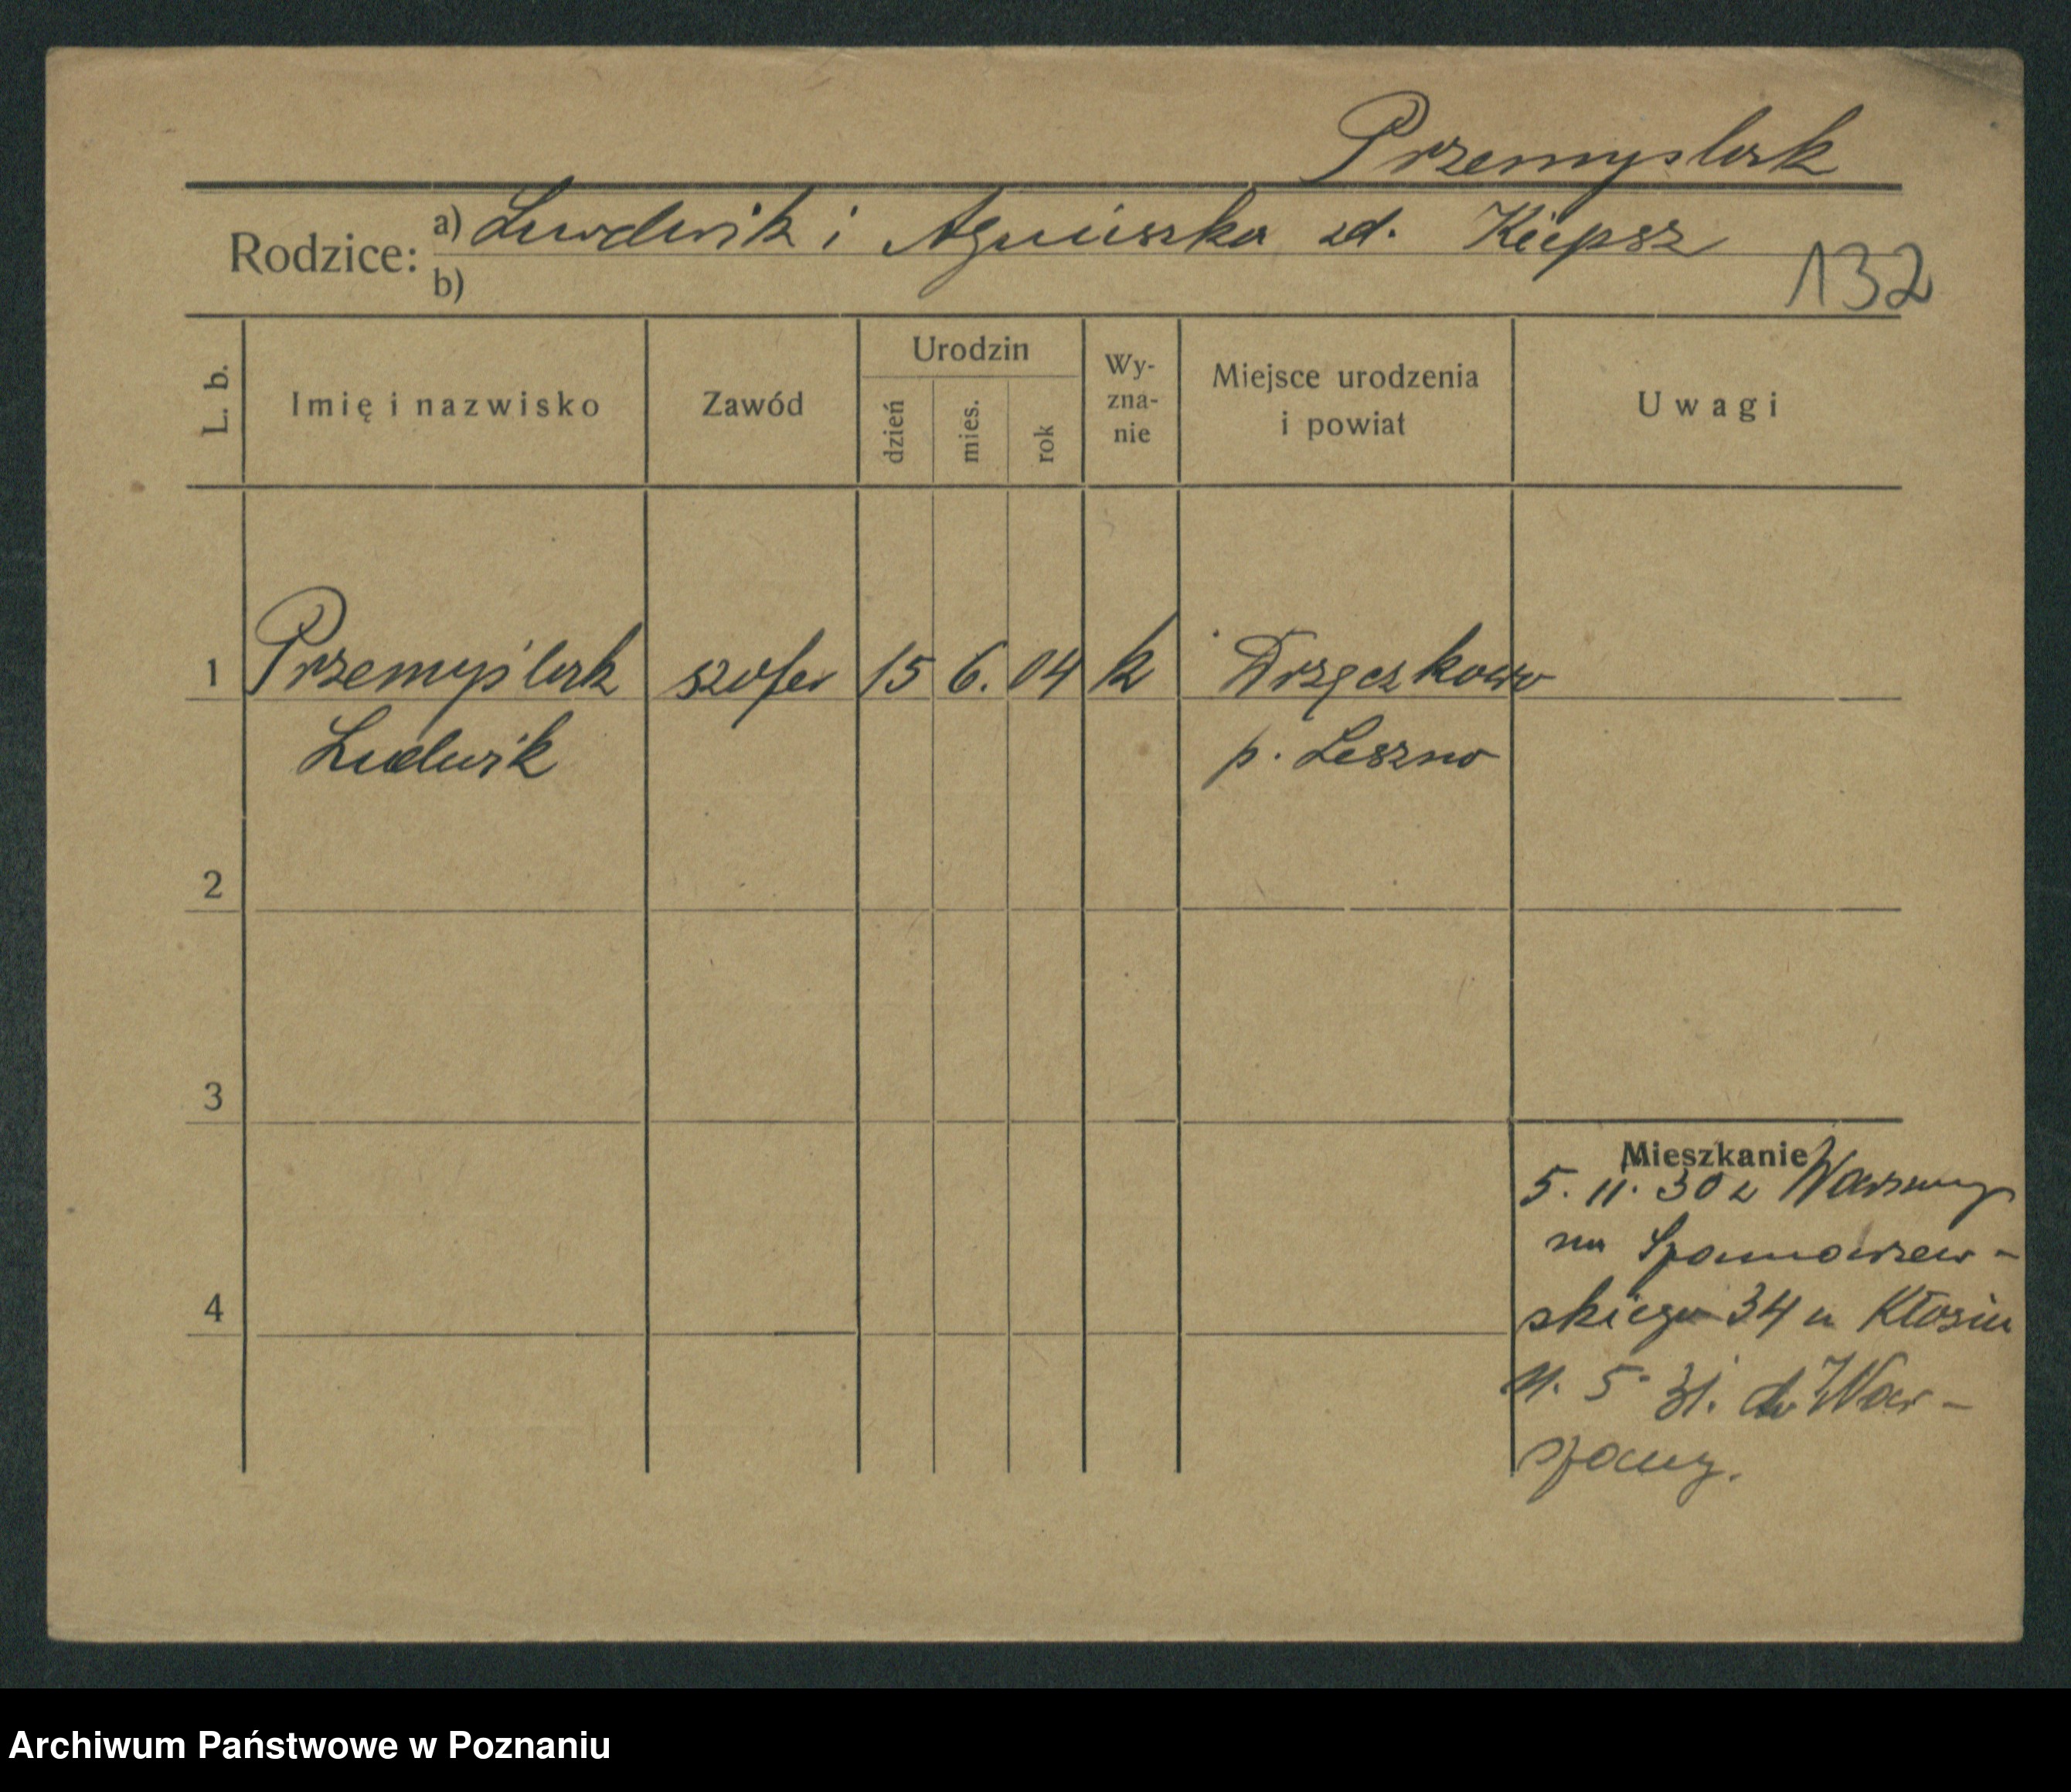 Przemyślak
Rodzice: a) Ludwik i Agnieszka zd. Kiepsz
b)
132
L. b.
Imię i nazwisko
Zawód
Urodzin
dzień
mies.
rok
Wy-
zna-
nie
Miejsce urodzenia
i powiat
Uwagi
1 Przemyślak szofer 15 6. 04 k Drzęczkowo
Ludwik p. Leszno
2
3
4
Mieszkanie
5. 11. 30 z Warszawy
na
skiego 34 u Kłosin
11. 5. 31. do War-
szawy.
Archiwum Państwowe w Poznaniu